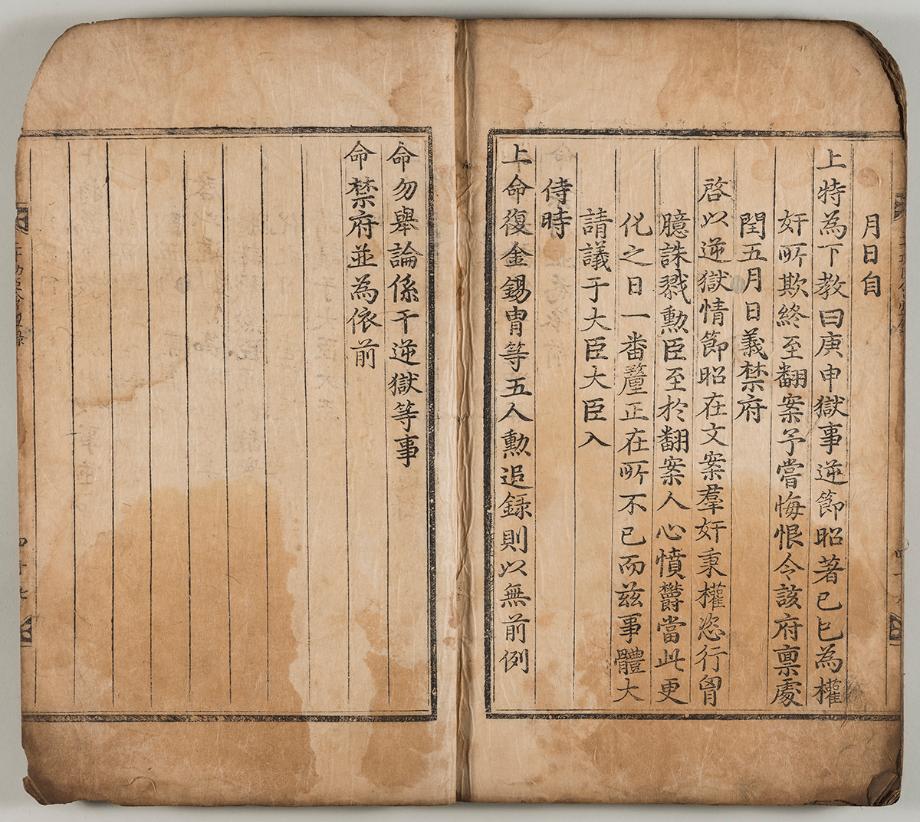 月日自
上特為下教曰庚申獄事逆節昭著己巳為權
奸所欺終至翻案予嘗悔恨令該府禀處
閏五月日義禁府
啓以逆獄情節昭在文案羣奸秉權恣行胷
臆誅戮勲臣至於翻案人心憤欝當此更
化之日一番釐正在所不已而兹事體大
請議于大臣大臣入
侍時
上命復金錫胄等五人勲追録則以無前例
命勿舉論係干逆獄等事
命禁府並為依前